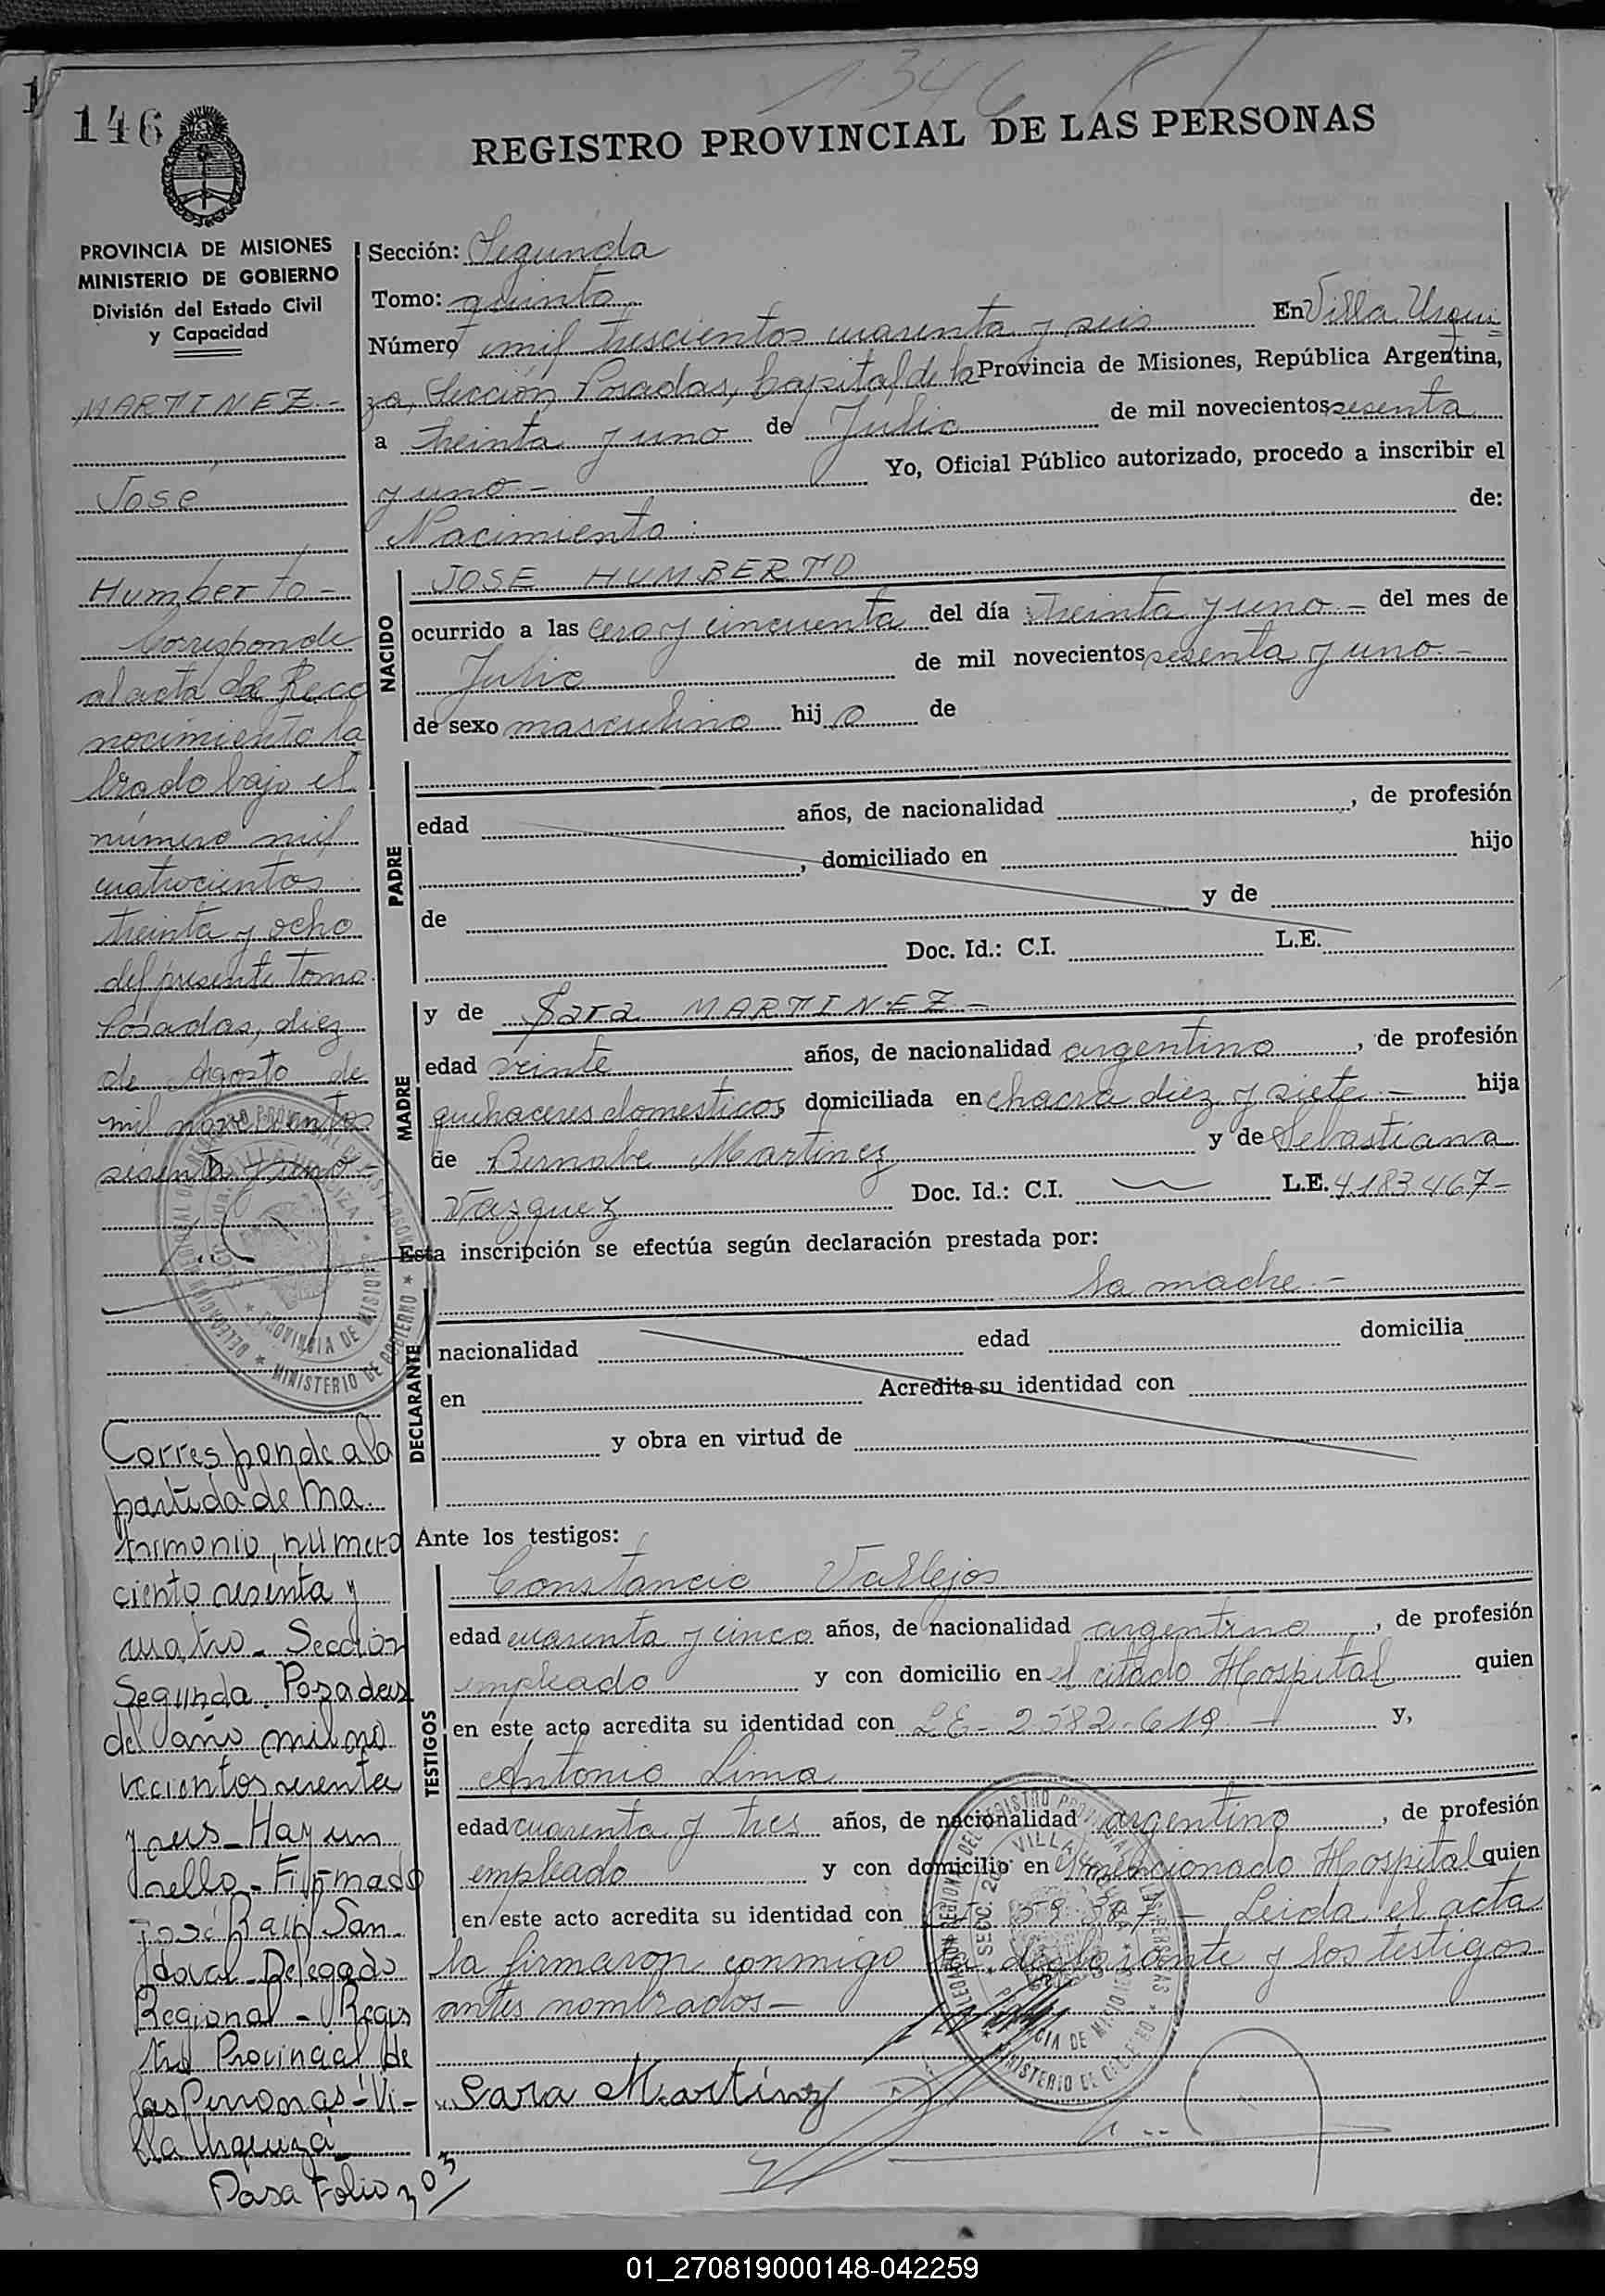 1346
146
REGISTRO PROVINCIAL DE LAS PERSONAS
PROVINCIA DE MISIONES
MINISTERIO DE GOBIERNO
División del Estado Civil
y Capacidad
MARTINEZ.-
Jose
Humberto-
Corresponde
al acta de Reco
nocimiento la
brado bajo el
número mil
cuatrocientos
treinta y ocho
del presente tomo
Posadas, diez
de Agosto de
mil novecientos
sesenta y uno-
Corresponde a la
partida de Ma.
trimonio, número
ciento sesenta y
cuatro- Sección
Segunda Posadas
del año mil no
vecientos sesenta
y seis- Hay un
sello- Firmado
José Raúl San-
doval- Delegado
Regional- Regis
tro Provincial de
las Personas- Vi-
lla Urquiza
Pasa Folio 303
Sección: Segunda
Tomo: quinto
Número mil trescientos cuarenta y seis En Villa Urqui=
za, Sección Posadas, Capital de la Provincia de Misiones, República Argentina,
a treinta y uno de Julio de mil novecientos sesenta
y uno- Yo, Oficial Público autorizado, procedo a inscribir el
Nacimiento: de:
NACIDO
JOSE HUMBERTO
ocurrido a las cero y cincuenta del día treinta y uno- del mes de
Julio de mil novecientos sesenta y uno-
de sexo masculino hijo de
PADRE
edad años, de nacionalidad , de profesión
, domiciliado en hijo
de y de
Doc. Id.: C.I. L.E.
MADRE
y de Sara MARTINEZ-
edad veinte años, de nacionalidad argentina , de profesión
quehaceres domesticos domiciliada en chacra diez y siete.- hija
de Bernabe Martinez y de Sebastiana
Vazquez Doc. Id.: C.I. L.E. 4.183.467-
Esta inscripción se efectúa según declaración prestada por:
la madre.-
DECLARANTE
nacionalidad edad domicilia
en Acredita su identidad con
y obra en virtud de
Ante los testigos:
TESTIGOS
Constancio Vallejos
edad cuarenta y cinco años, de nacionalidad argentino , de profesión
empleado y con domicilio en el citado Hospital quien
en este acto acredita su identidad con L.E- 2582-619- y,
Antonio Lima
edad cuarenta y tres años, de nacionalidad argentino , de profesión
empleado y con domicilio en el mencionado Hospital quien
en este acto acredita su identidad con Leida el acta
la firmaron conmigo la declarante y los testigos
antes nombrados-
Sara Martinez
01_270819000148-042259